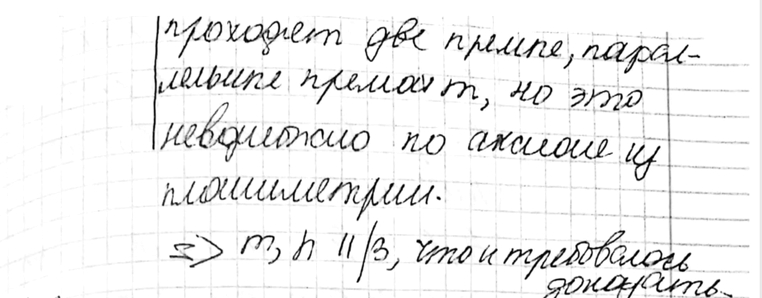 проходят две прямые, парал-
лельные прямой m, но это
невозможно по аксиоме из
планиметрии.
=> m, n || β, что и требовалось
доказать.